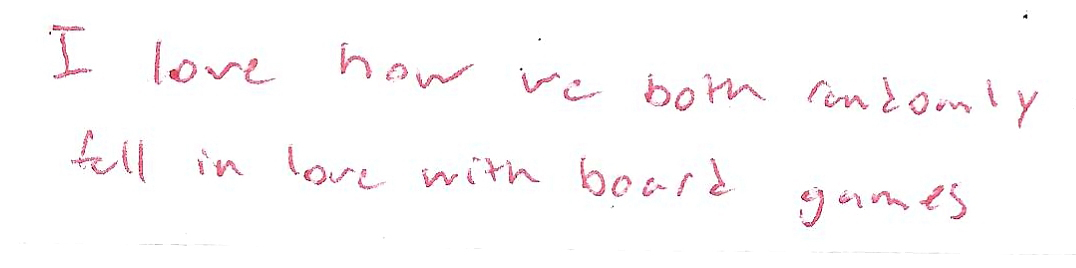 I love how we both randomly
fell in love with board games